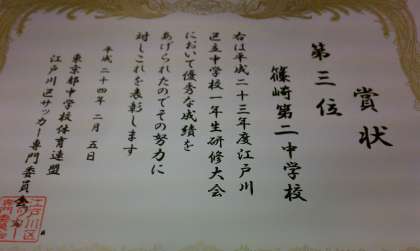 賞状
第三位
篠崎第二中学校
右は平成二十三年度江戸川
区立中学校一年生研修大会
において優秀な成績を
あげられたのでその努力に
対しこれを表彰します
平成二十四年二月五日
東京都中学校体育連盟
江戸川区サッカー専門委員会
江戸川区
サッカー
専門委員会